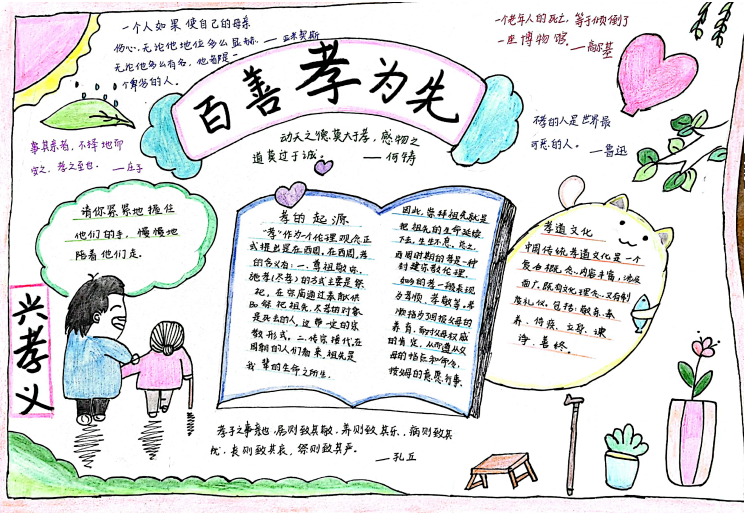 一个人如果使自己的母亲
伤心,无论他地位多么显赫,
无论他多么有名,他都是一
个卑劣的人。
一个老年人的死亡,等于倾倒了
一座博物馆。—高尔基
百善孝为先
动天之德莫大于孝,感物之
道莫过于诚。——何铸
不孝的人是世界最
可恶的人。——鲁迅
事其亲者,不择地而
安之,孝之至也。—庄子
请你紧紧地握住
他们的手,慢慢地
陪着他们走。
兴孝义
孝的起源
"孝"作为一个伦理观念正
式提出是在西周,在西周,孝
的含义有:一.尊祖敬宗。
施孝(尽孝)的方式主要是祭
祀,在宗庙通过奉献供
品祭祀祖先,尽孝的对象
是死去的人,这带一定的宗
教形式。二.传宗接代,在
周朝的人们看来,祖先是
我辈的生命之所生,
因此崇拜祖先就是
把祖先的生命延续
下去,生生不息。总之,
西周时期的孝是一种
封建宗教伦理,
如今的孝一般表现
为孝顺、孝敬等。孝
顺指为了回报父母的
养育,而对父母权威
的肯定,从而遵从父
母的指示和命令,
按照父母的意愿行事。
孝道文化
中国传统孝道文化是一个
复合概念,内容丰富,涉及
面广,既有文化理念,又有制
度礼仪,包括:敬亲、奉
养、侍疾、立身、谏
诤、善终。
孝子之事亲也,居则致其敬,养则致其乐,病则致其
忧,丧则致其哀,祭则致其严。
—孔丘